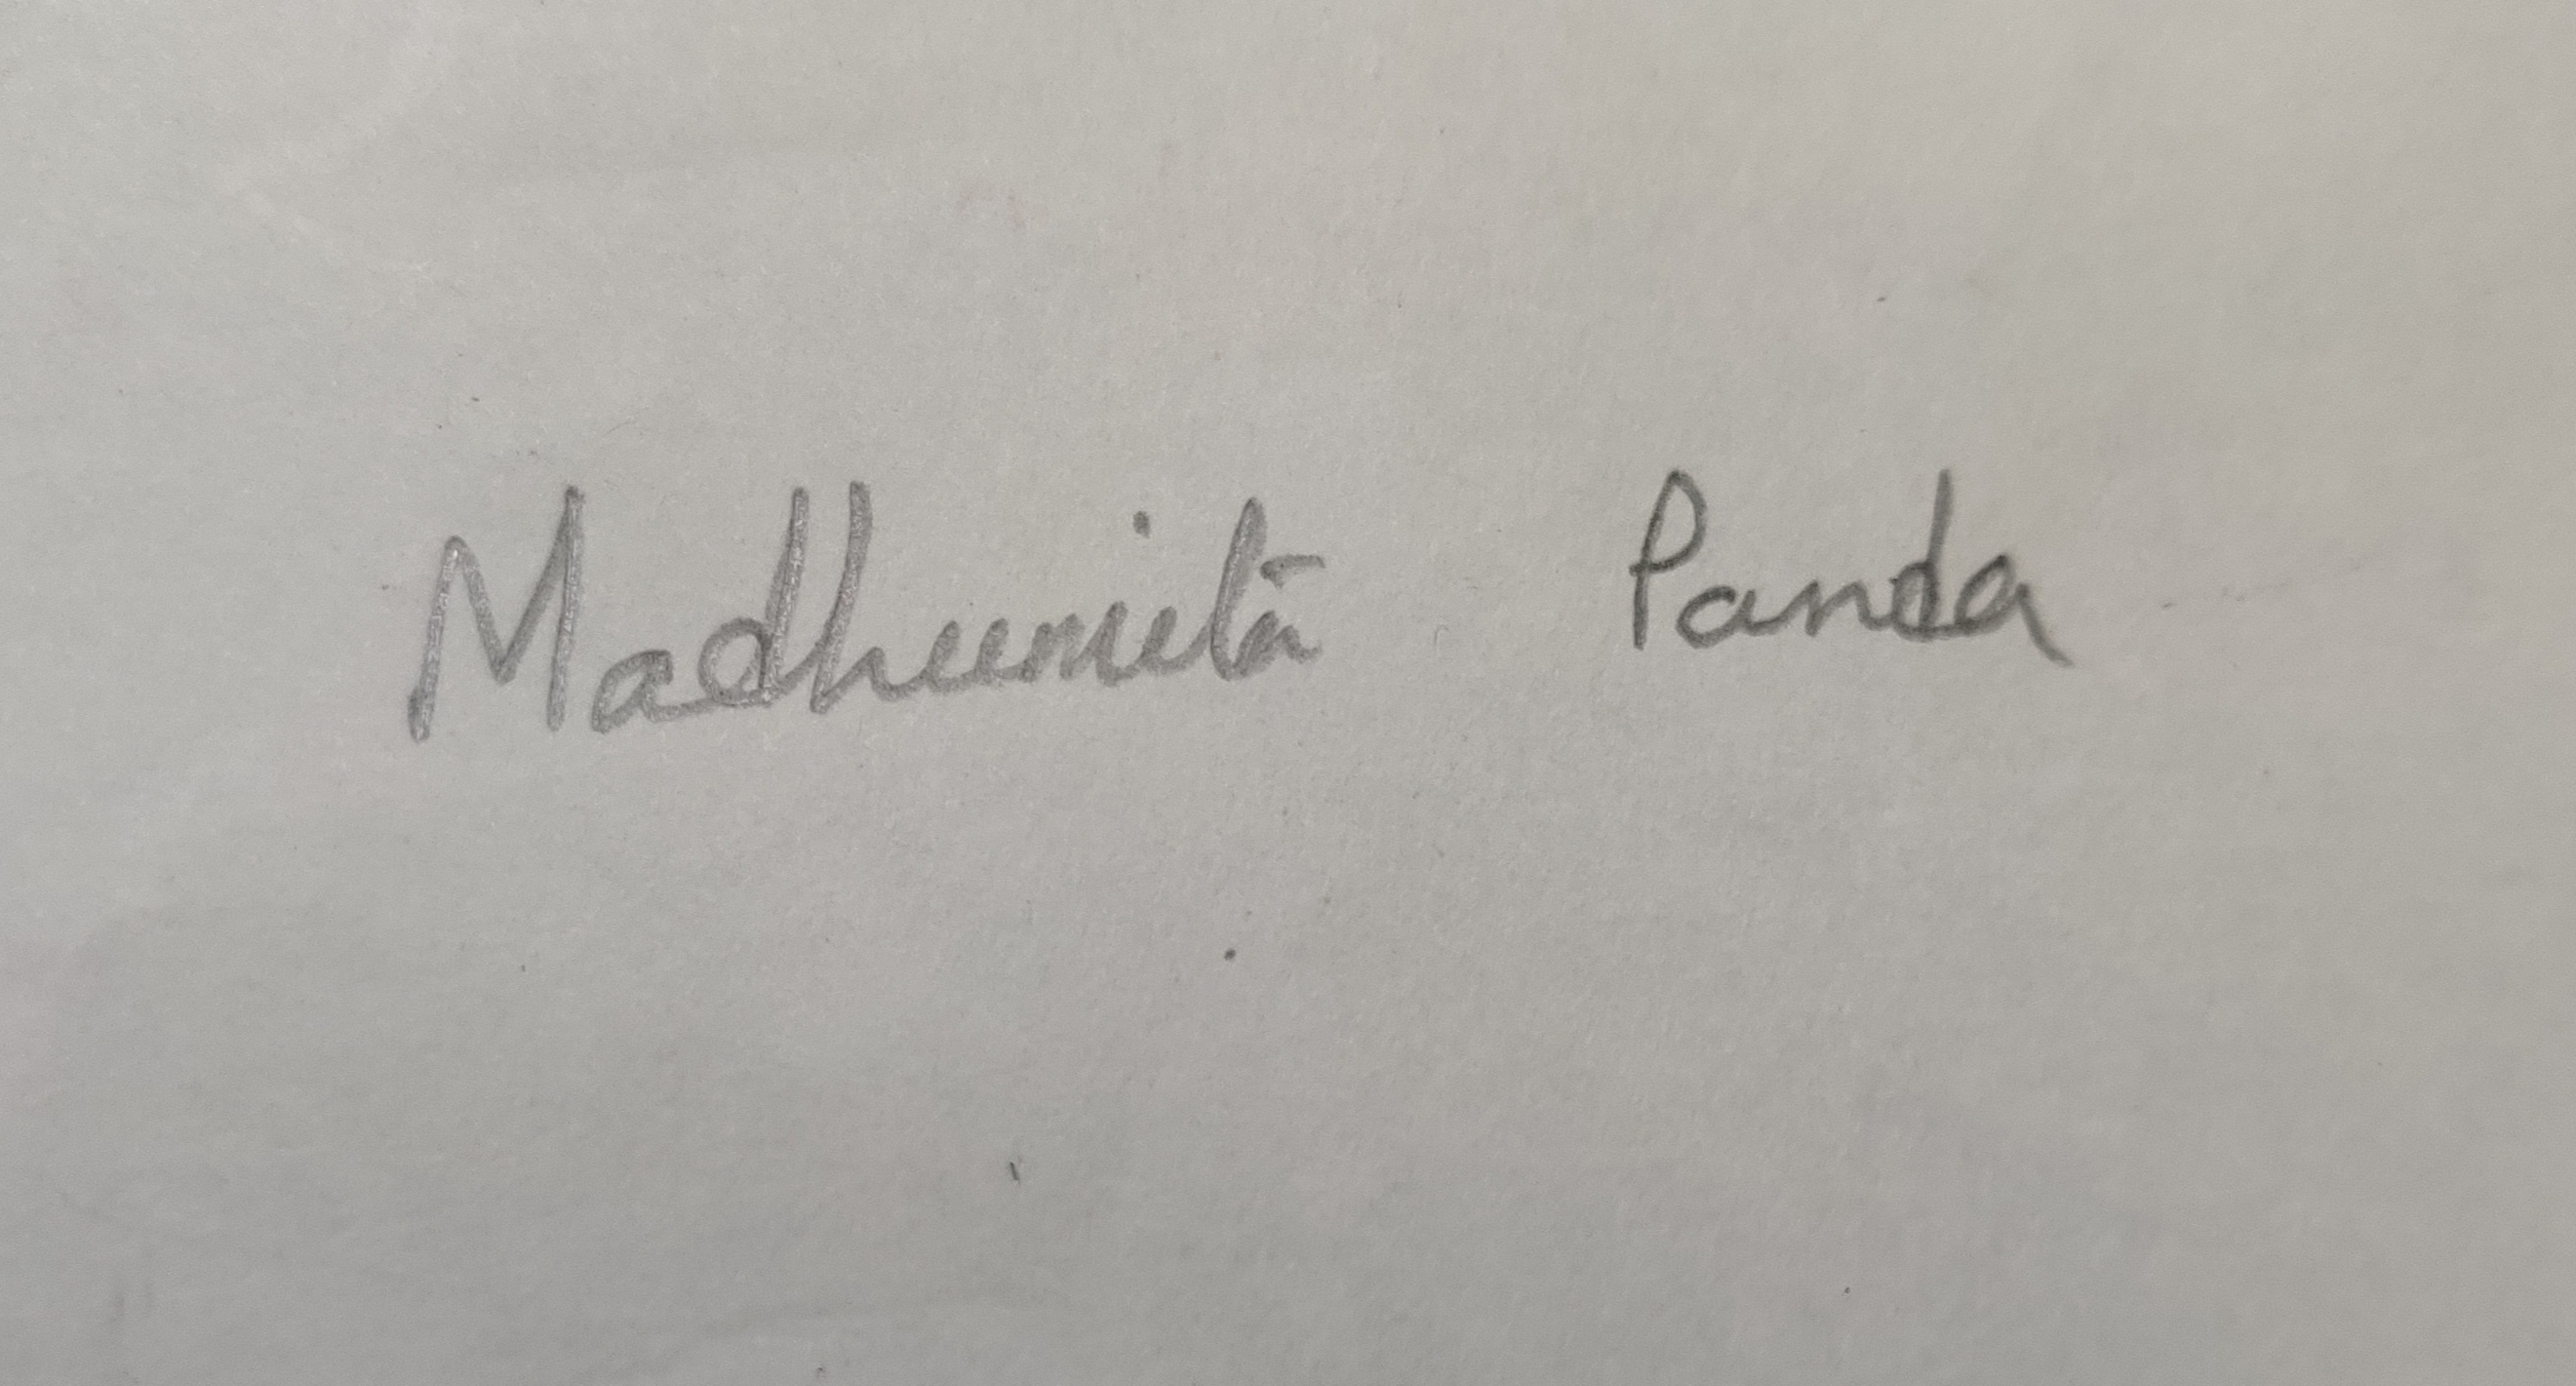 Madhumita Panda